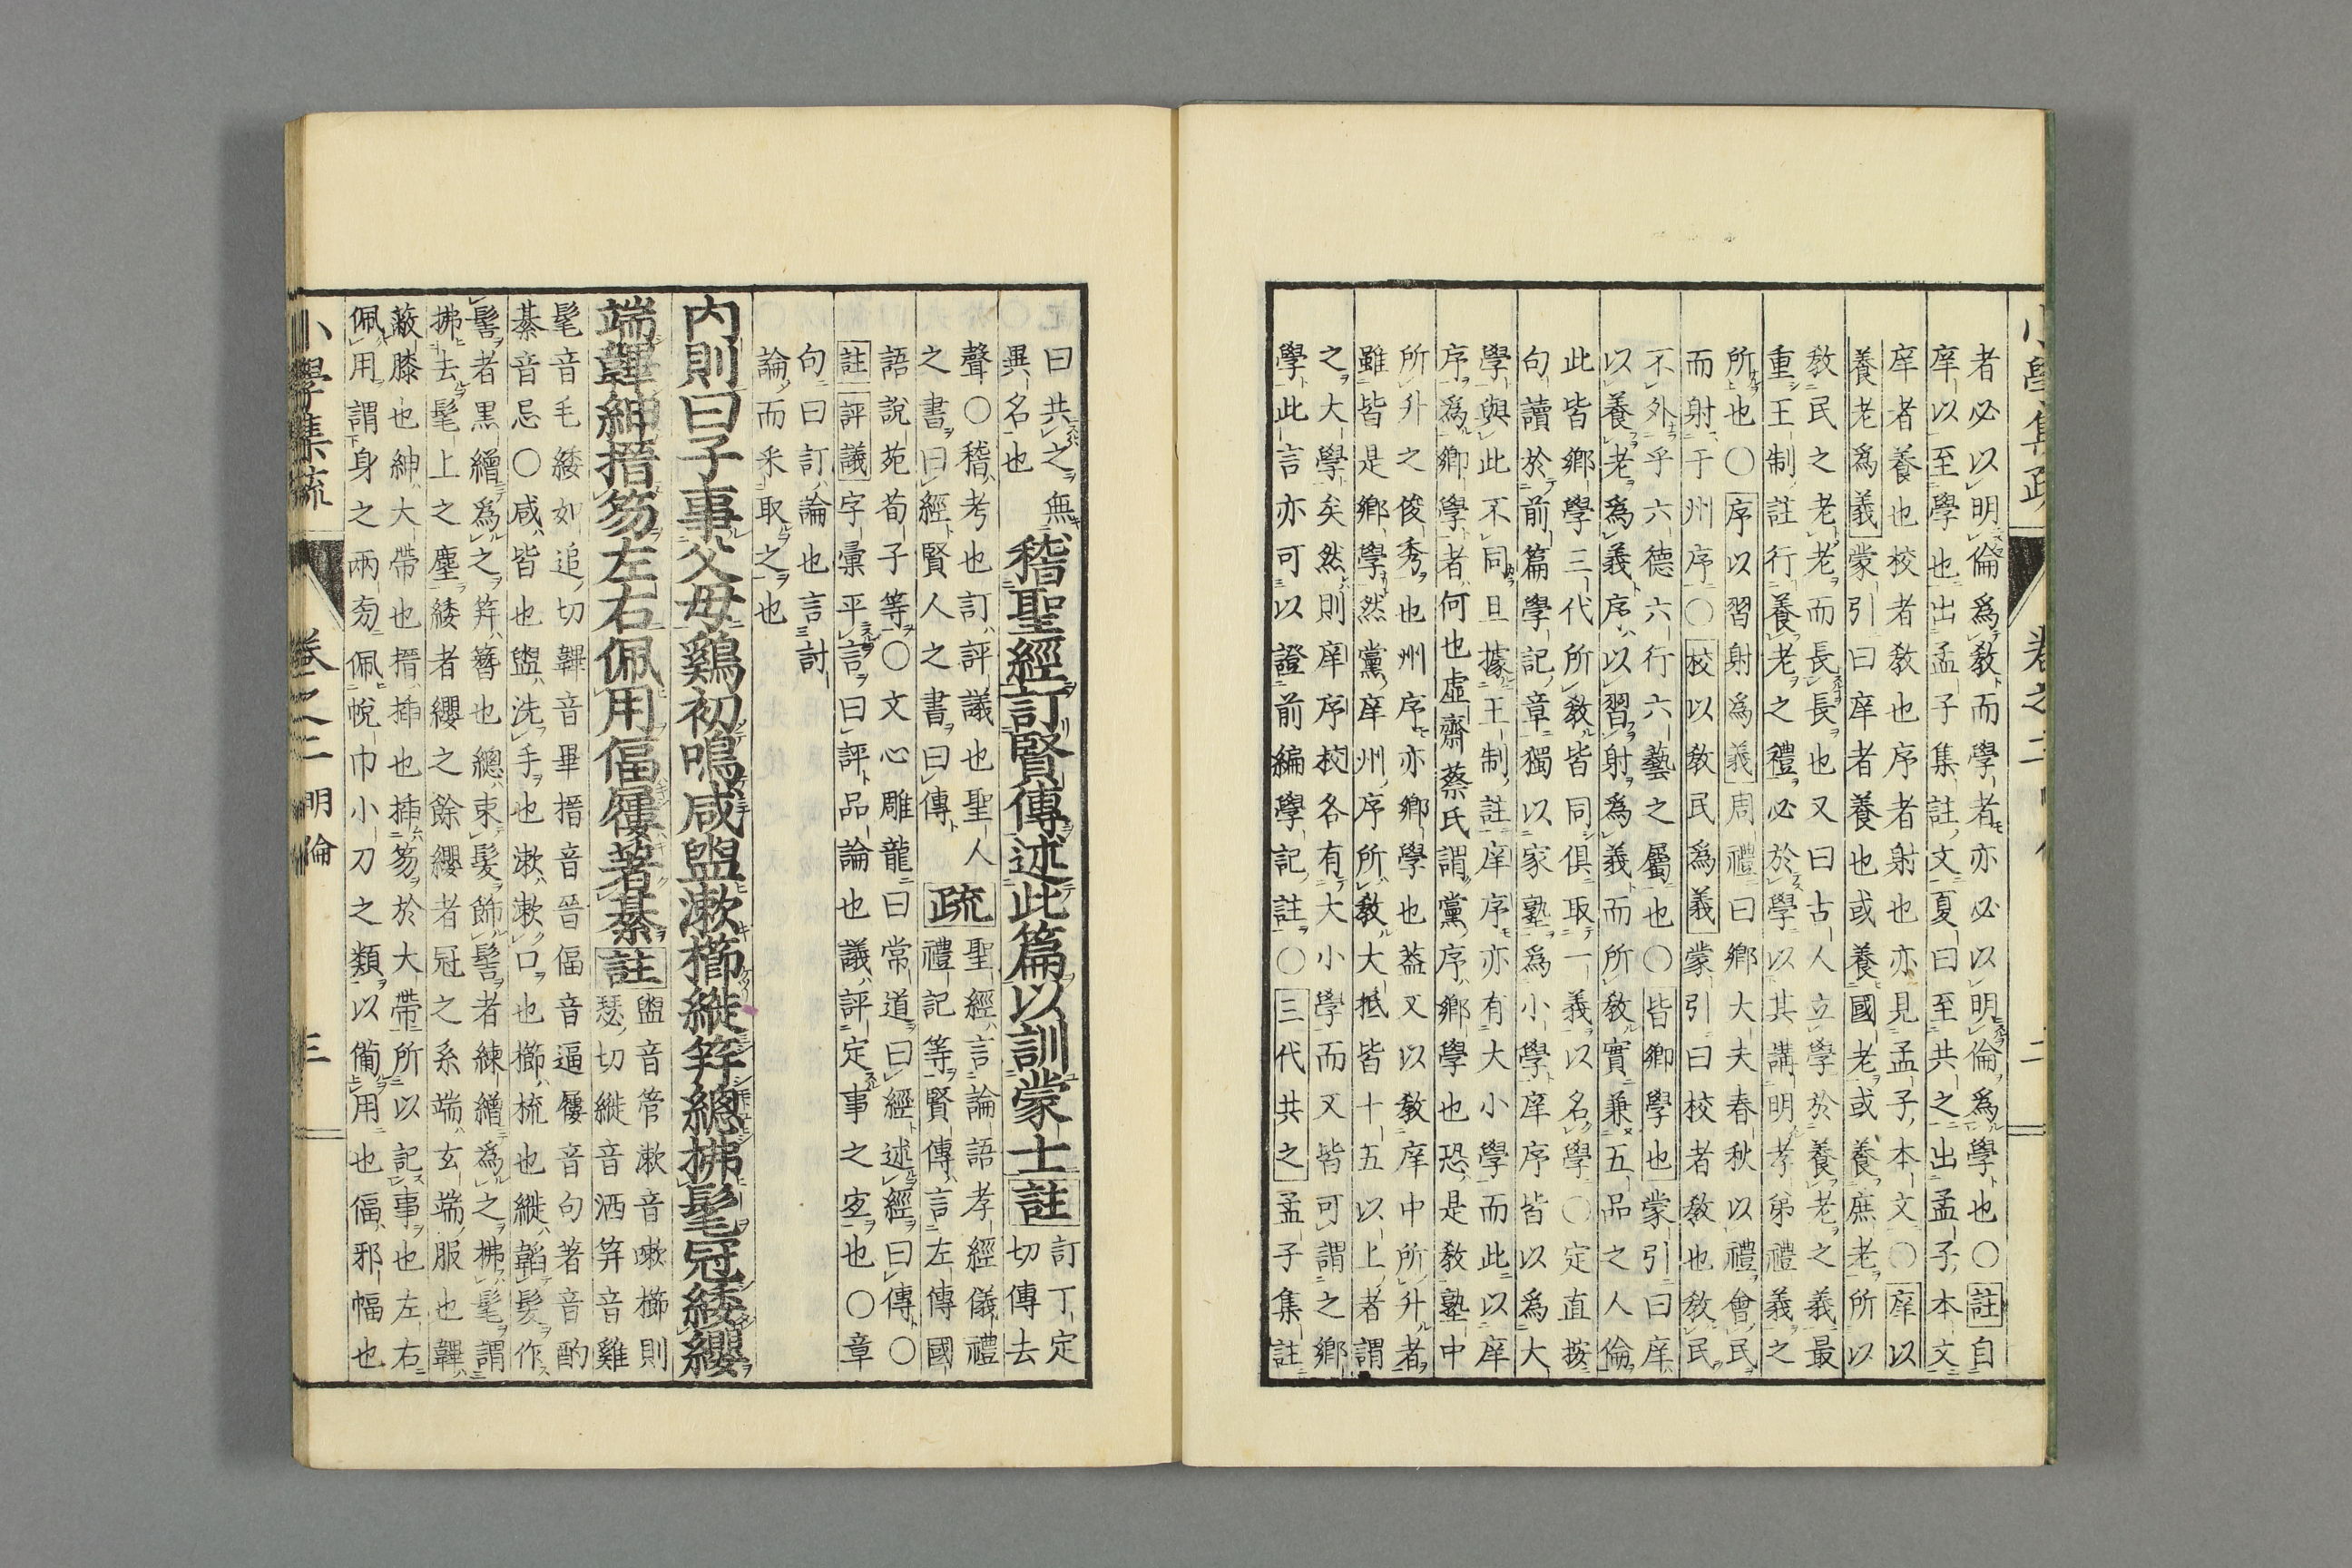 者必以明倫爲教而學者亦必以明倫爲學也○註自
庠以至學也出孟子集註文夏曰至共之出孟子本文
庠者養也校者教也序者射也亦見孟子本文○庠以
養老爲義蒙引曰庠者養也或養國老或養庶老所以
教民之老老而長長也又曰古人立學於養老之義最
重王制註行養老之禮必於學以其講明孝弟禮義之
所也○序以習射爲義周禮曰鄉大夫春秋以禮會民
而射于州序○校以教民爲義蒙引曰校者教也教民
不外乎六德六行六藝之屬也○皆鄉學也蒙引曰庠
以養老爲義序以習射爲義而所教實兼五品之人倫
此皆鄉學三代所教皆同俱取一義以名學○定直按
句讀於前篇學記章獨以家塾爲小學庠序皆以爲大
學與此不同且據王制註庠序亦有大小學而此以庠
序爲鄉學者何也虛齋蔡氏謂黨序鄉學也恐是教塾中
所升之俊秀也州序亦鄉學也蓋又以教庠中所升者
雖皆是鄉學然黨庠州序所教大抵皆十五以上者謂
之大學矣然則庠序校各有大小學而又皆可謂之鄉
學此言亦可以證前編學記註○三代共之孟子集註
曰共之無
異名也
稽聖經訂賢傳述此篇以訓蒙士註
訂丁定
切傳去
聲○稽考也訂評議也聖人
之書曰經賢人之書曰傳
疏
聖經言論語孝經儀禮
禮記等賢傳言左傳國
語說苑荀子等○文心雕龍曰常道曰經述經曰傳○
註評議字彙平言曰評品論也議評定事之宜也○章
句曰訂論也言討
論而采取之也
內則曰子事父母鷄初鳴咸盥漱櫛縰笄總拂髦冠緌纓
端韠紳搢笏左右佩用偪屨著綦註
盥音管漱音嗽櫛則
瑟切縰音洒笄音雞
髦音毛緌如追切韠音畢搢音晉偪音逼屨音句著音酌
綦音忌○咸皆也盥洗手也漱漱口也櫛梳也縰韜髮作
髻者黑繒爲之笄簪也總束髮飾髻者練繒爲之拂髦謂
拂去髦上之塵緌者纓之餘纓者冠之系端玄端服也韠
蔽膝也紳大帶也搢插也插笏於大帶所以記事也左右
佩用謂身之兩旁佩帨巾小刀之類以備用也偪邪幅也
小學集疏 卷之二 明倫 三